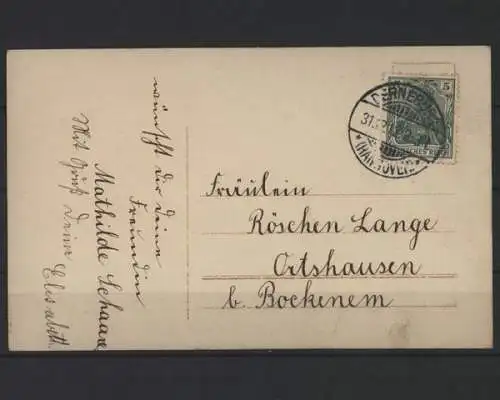 wünscht dir deine
Freundin
Mathilde Schaare
Mit Gruß deine Elisabeth.
Fräulein
Röschen Lange
Ortshausen
b. Bockenem
5
(HANNOVER)